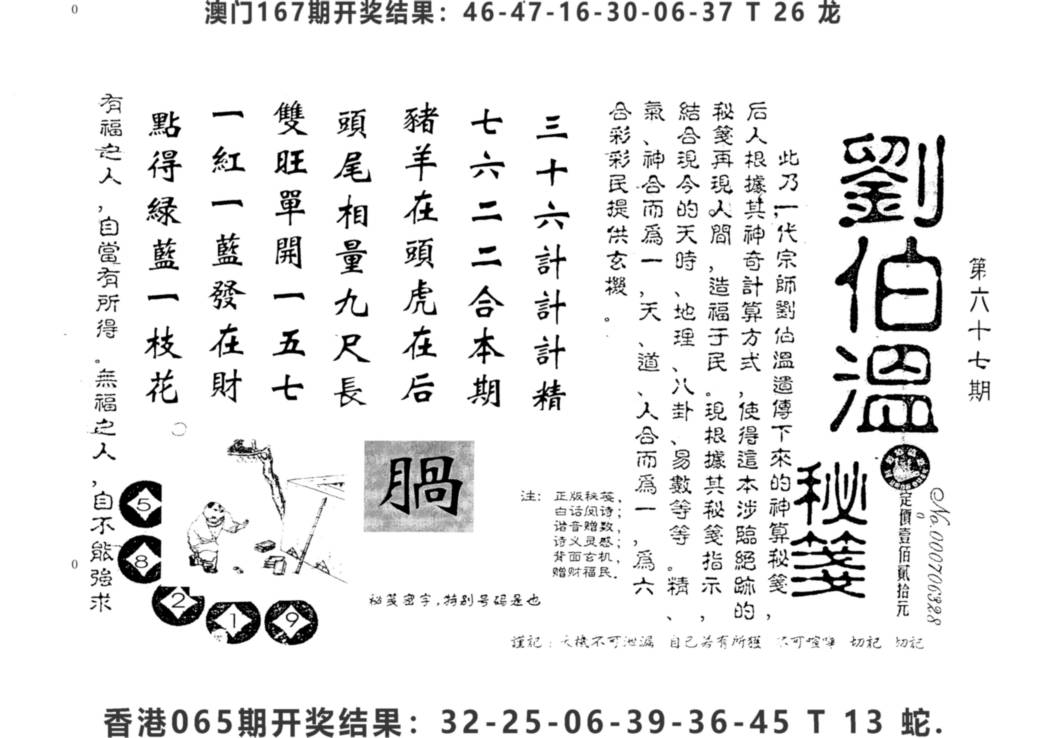 澳门167期开奖结果：46-47-16-30-06-37 T 26 龙
第六十七期
劉伯溫
秘箋
定價壹佰貳拾元
No.000706328
此乃一代宗師劉伯溫遺傳下來的神算秘箋，
后人根據其神奇計算方式，使得這本涉臨絕跡的
秘箋再現人間，造福于民。現根據其秘箋指示，
結合現今的天時、地理、八卦、易數等等。精、
氣、神合而爲一，天、道、人合而爲一，爲六
合彩彩民提供玄機。
三十六計計計精
七六二二合本期
豬羊在頭虎在后
頭尾相量九尺長
雙旺單開一五七
一紅一藍發在財
點得綠藍一枝花
有福之人，自當有所得。無福之人，自不能強求
腡
注：正版秘笺，
白话闵诗；
谐音赠数，
诗义灵感；
背面玄机，
赠财福民。
5
8
2
1
9
秘笺密字，特别号码是也
謹記：天機不可泄漏 自己若有所獲 不可喧嘩 切記 切記
香港065期开奖结果：32-25-06-39-36-45 T 13 蛇.
0
0